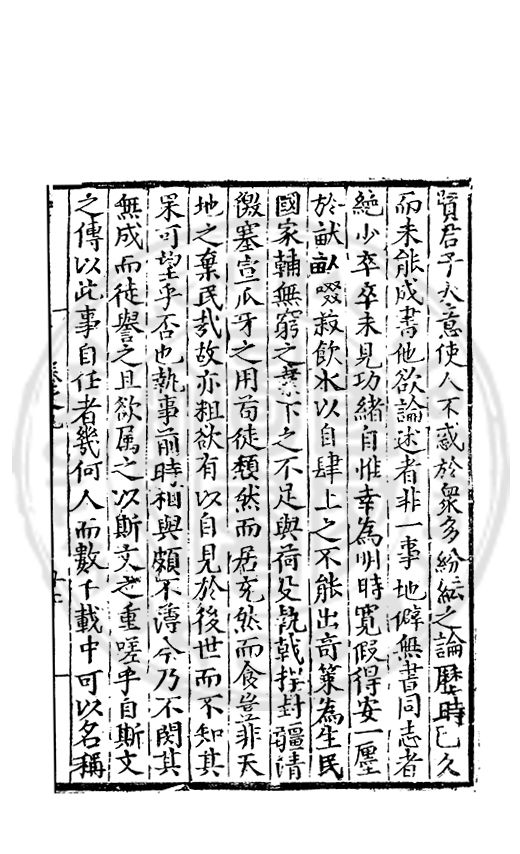 賢君子大意使人不惑於衆多紛紜之論歷時已久
而未能成書他欲論述者非一事地僻無書同志者
絶少卒卒未見功緒自惟幸為明時寛假得安一廛
於畎畆啜菽飲水以自肆上之不能出竒策為生民
國家輔無窮之業下之不足與荷殳執戟捍封疆清
徼塞宣爪牙之用苟徒頽然而居充然而食豈非天
地之棄民哉故亦粗欲有以自見於後世而不知其
果可望乎否也執事前時相與頗不薄今乃不閔其
無成而徒譽之且欲属之以斯文之重嗟乎自斯文
之傳以此事自任者幾何人而數千載中可以名稱